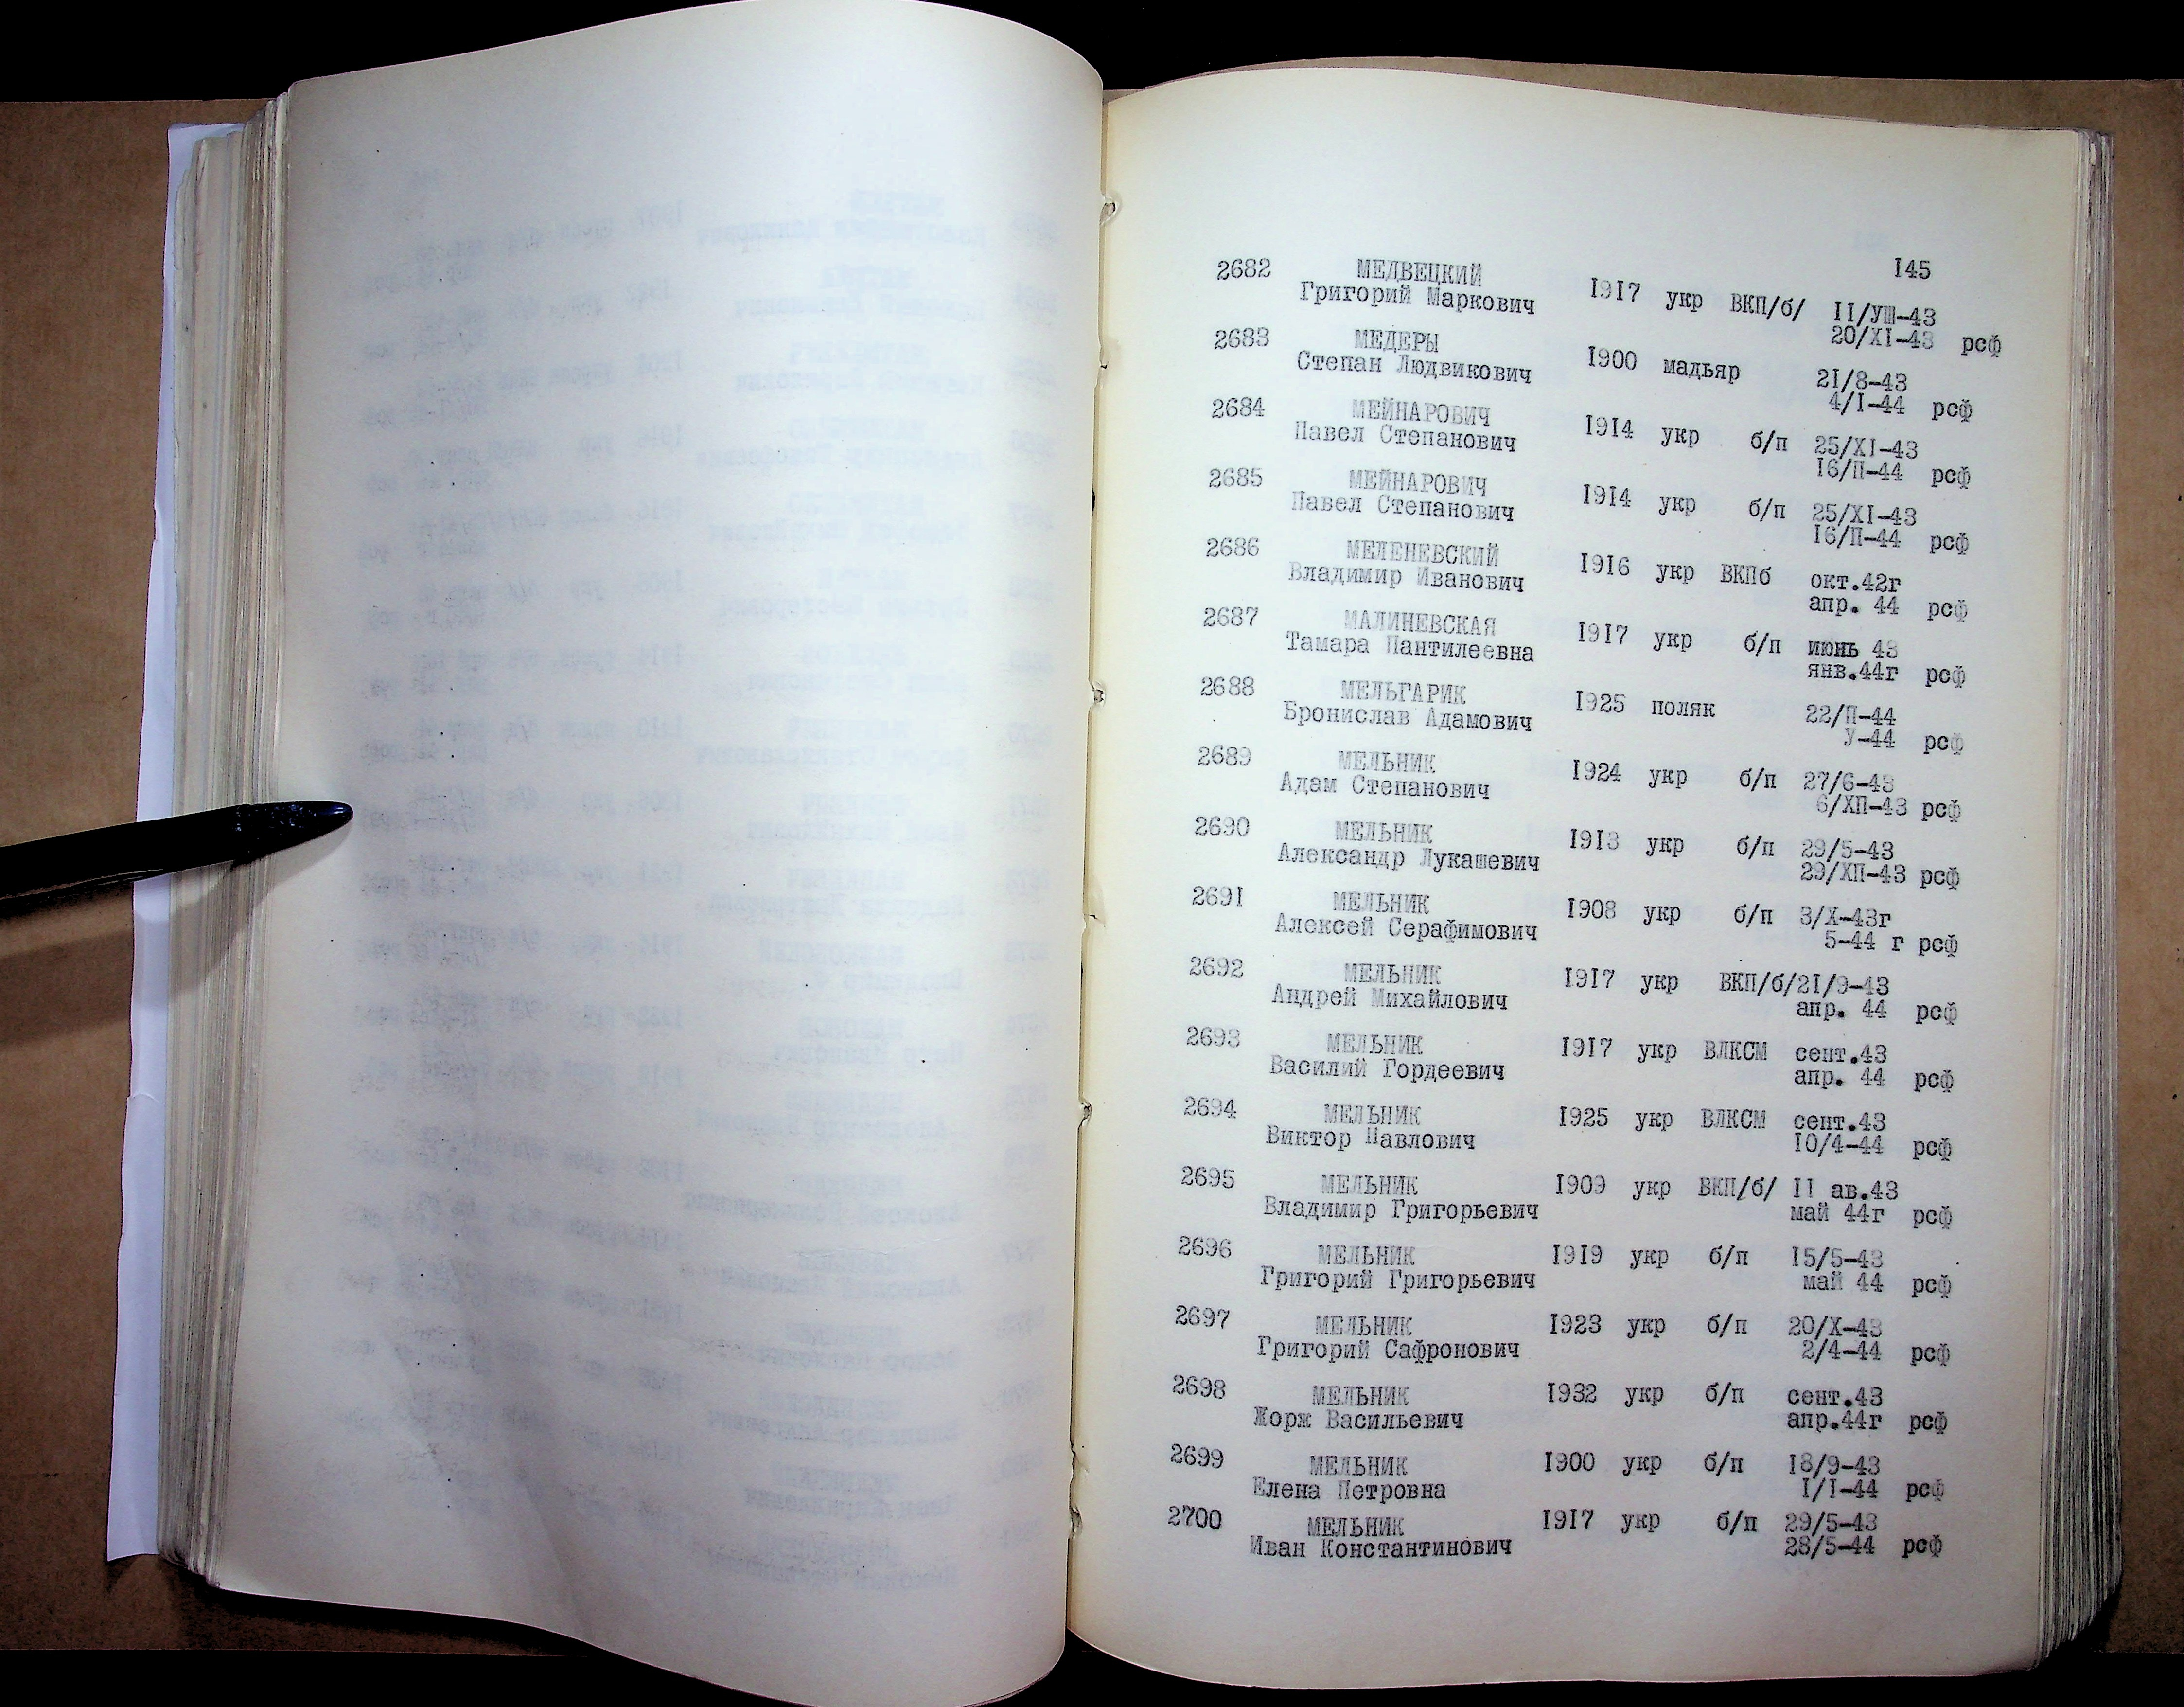 145
2682 МЕДВЕЦКИЙ
Григорий Маркович 1917 укр ВКП/б/ II/УШ-43
20/XI-43 рсф
2683 МЕДЕРЫ
Степан Людвикович 1900 мадьяр 21/8-43
4/I-44 рсф
2684 МЕЙНАРОВИЧ
Павел Степанович 1914 укр б/п 25/XI-43
16/П-44 рсф
2685 МЕЙНАРОВИЧ
Павел Степанович 1914 укр б/п 25/XI-43
16/П-44 рсф
2686 МЕЛЕНЕВСКИЙ
Владимир Иванович 1916 укр ВКПб окт.42г
апр. 44 рсф
2687 МАЛИНЕВСКАЯ
Тамара Пантилеевна 1917 укр б/п июнь 43
янв.44г рсф
2688 МЕЛЬГАРИК
Бронислав Адамович 1925 поляк 22/П-44
У-44 рсф
2689 МЕЛЬНИК
Адам Степанович 1924 укр б/п 27/6-43
6/ХП-43 рсф
2690 МЕЛЬНИК
Александр Лукашевич 1913 укр б/п 29/5-43
29/ХП-43 рсф
2691 МЕЛЬНИК
Алексей Серафимович 1908 укр б/п 3/X-43г
5-44 г рсф
2692 МЕЛЬНИК
Андрей Михайлович 1917 укр ВКП/б/21/9-43
апр. 44 рсф
2693 МЕЛЬНИК
Василий Гордеевич 1917 укр ВЛКСМ сент.43
апр. 44 рсф
2694 МЕЛЬНИК
Виктор Павлович 1925 укр ВЛКСМ сент.43
10/4-44 рсф
2695 МЕЛЬНИК
Владимир Григорьевич 1909 укр ВКП/б/ II ав.43
май 44г рсф
2696 МЕЛЬНИК
Григорий Григорьевич 1919 укр б/п 15/5-43
май 44 рсф
2697 МЕЛЬНИК
Григорий Сафронович 1923 укр б/п 20/X-43
2/4-44 рсф
2698 МЕЛЬНИК
Жорж Васильевич 1932 укр б/п сент.43
апр.44г рсф
2699 МЕЛЬНИК
Елена Петровна 1900 укр б/п 18/9-43
I/I-44 рсф
2700 МЕЛЬНИК
Иван Константинович 1917 укр б/п 29/5-43
28/5-44 рсф